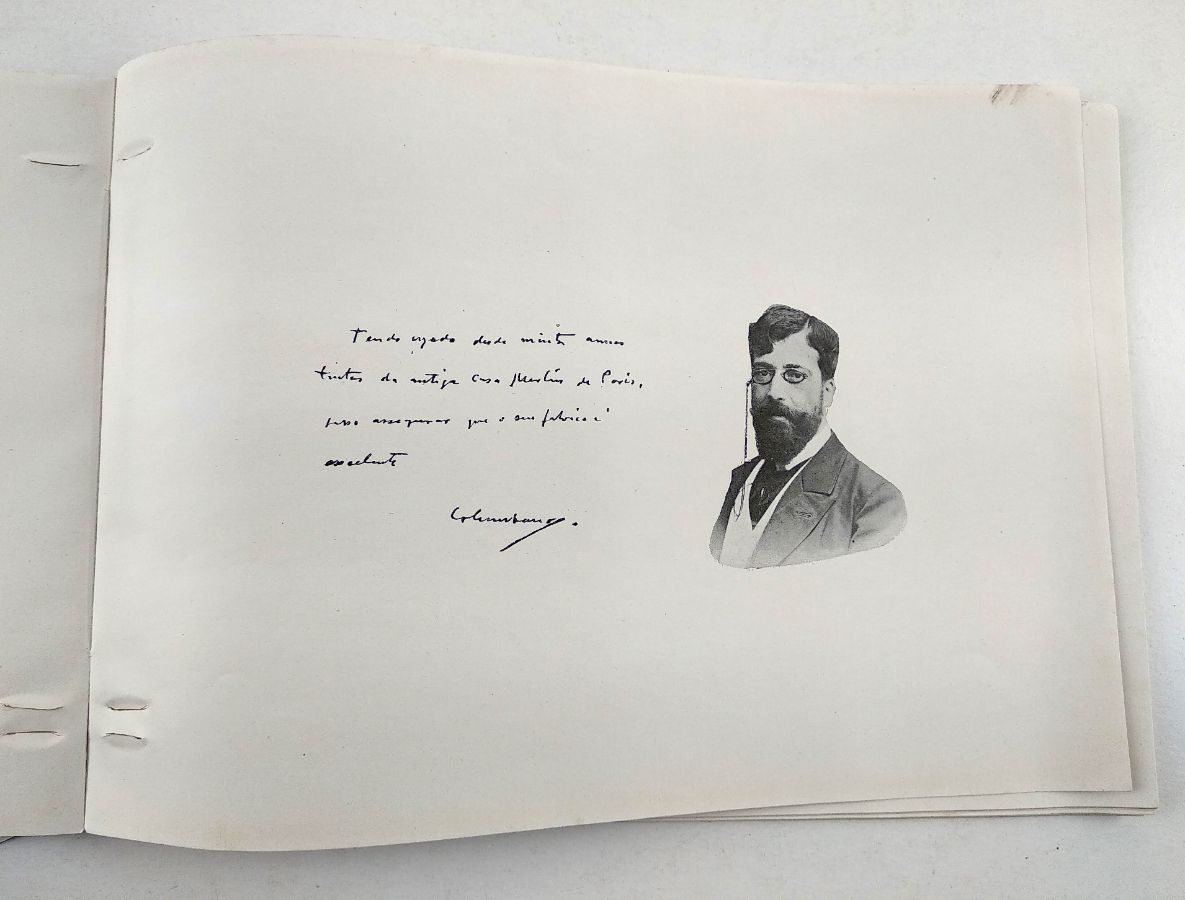 Tendo usado desde muitos annos
tintas da antiga casa Merlin de Paris,
posso assegurar que o seu fabrico é
excelente
Columbano.